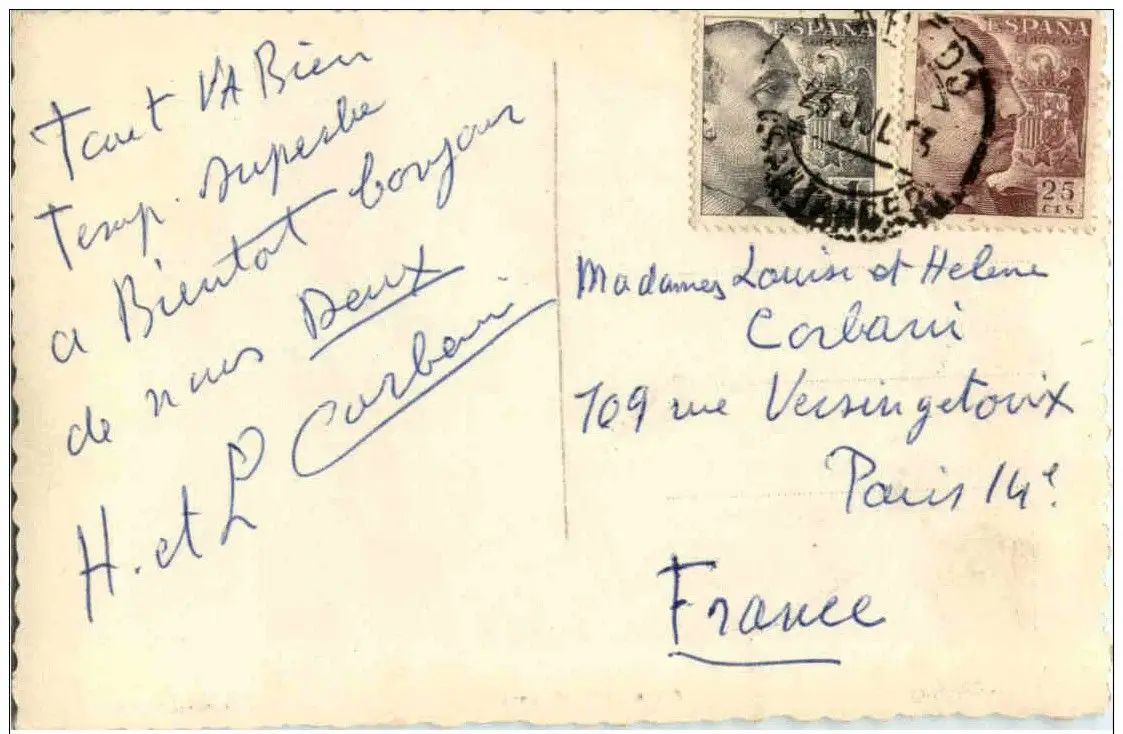 Tout VA Bien
Temp. superbe
a Bientot bonjour
de nous Deux
H. et L Corbani
ESPAÑA
CORREOS
ESPAÑA
25
CTS
25 JUL
SANTANDER
Madames Louise et Helene
Corbani
109 rue Versingetorix
Paris 14e.
France